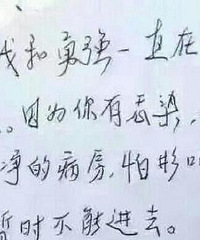 我和勇强一直在
。因为你有感染,
净的病房,怕影响
暂时不能进去。